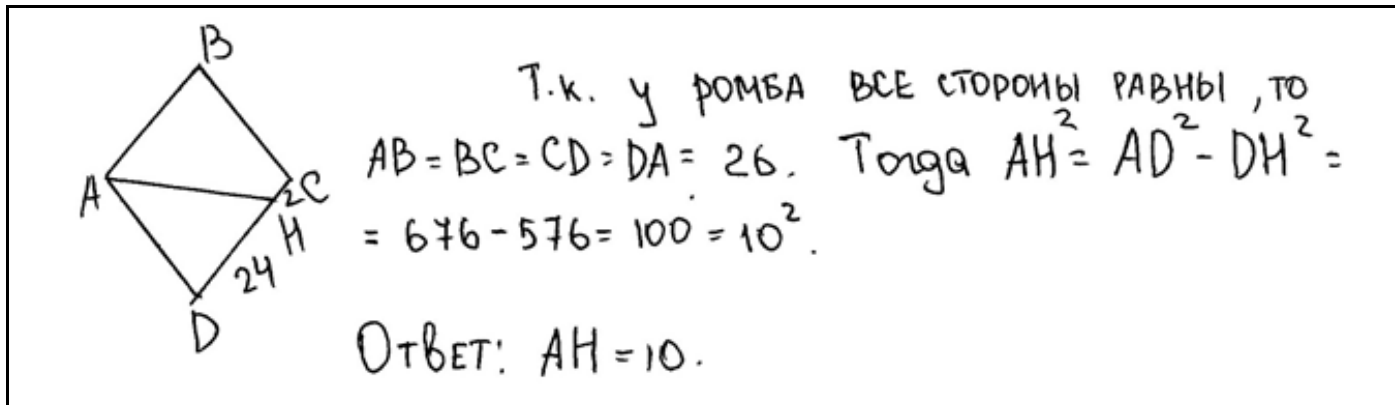 B
Т.к. у ромба все стороны равны, то
AB = BC = CD = DA = 26. Тогда AH² = AD² - DH² =
A
2
C
H
= 676 - 576 = 100 = 10².
24
D
Ответ: AH = 10.